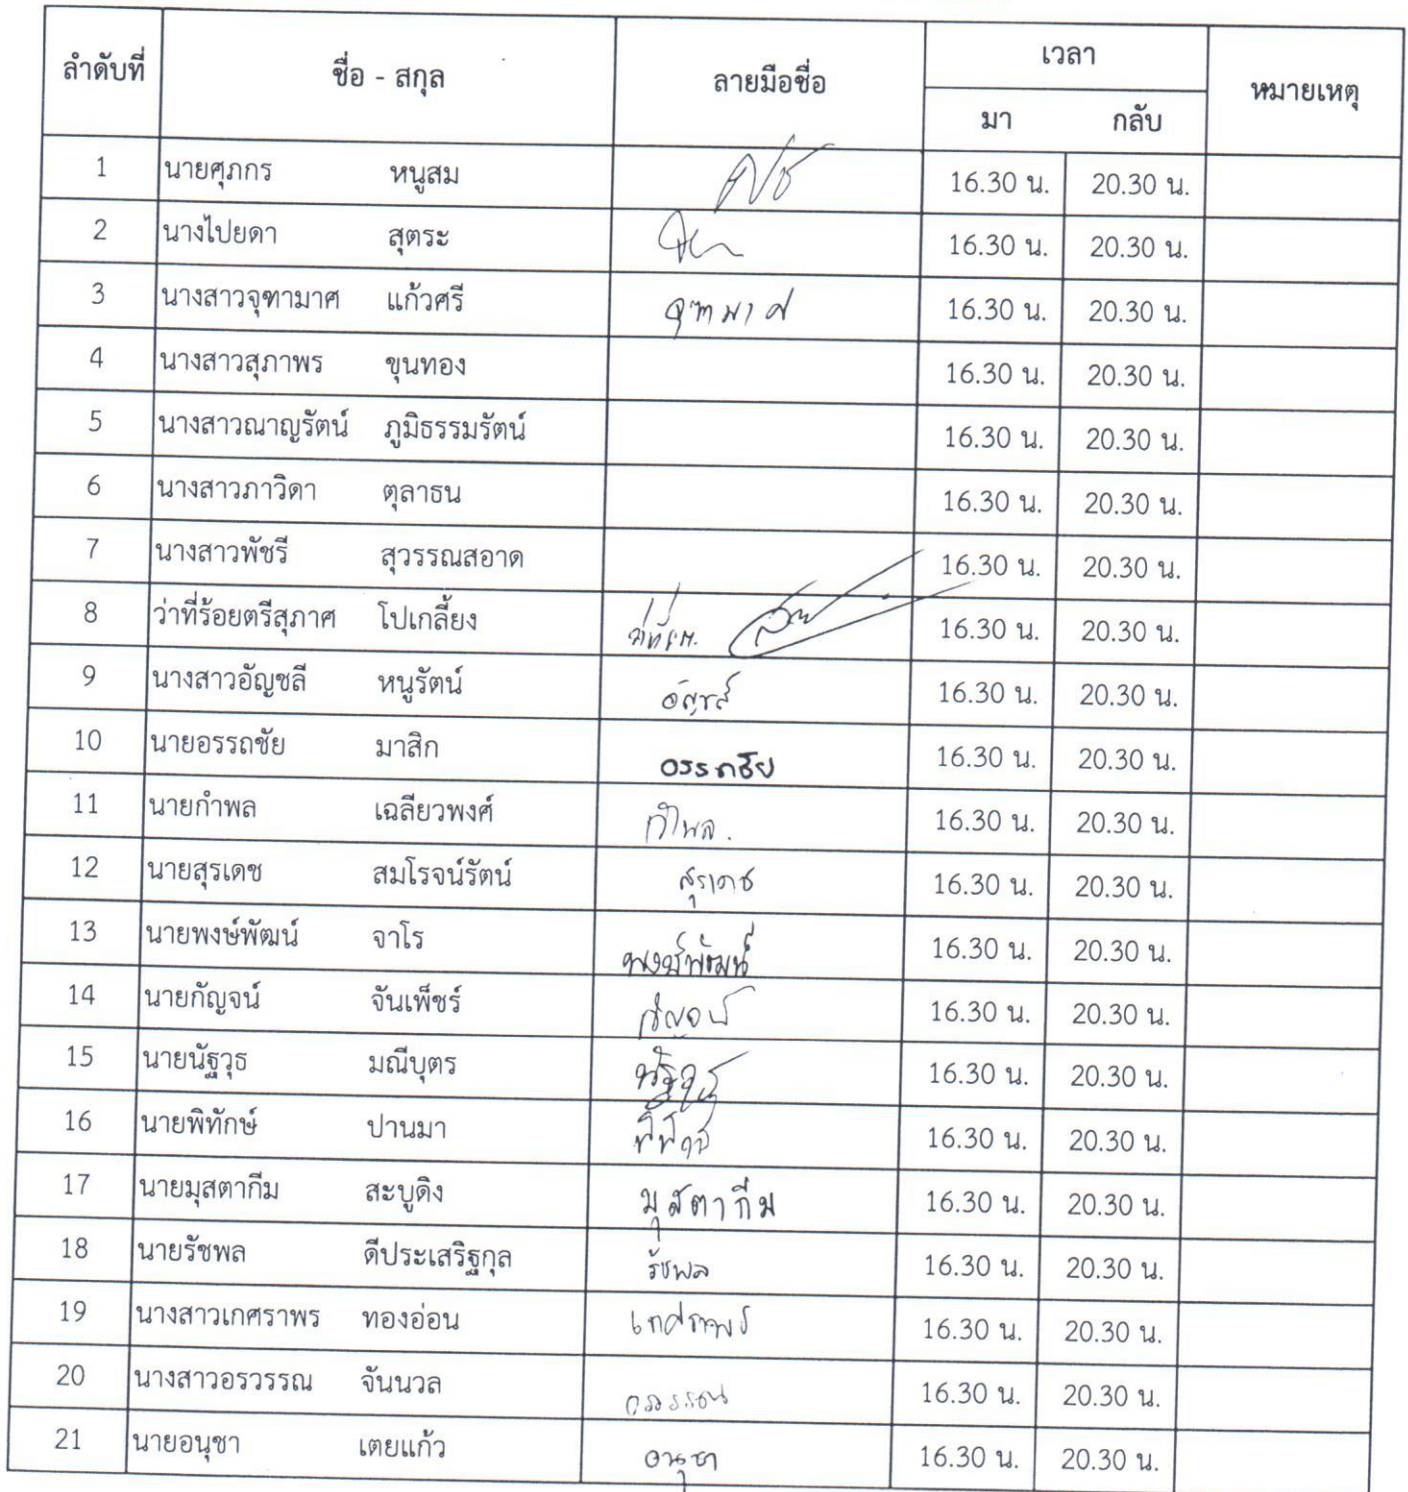 ลำดับที่ ชื่อ - สกุล ลายมือชื่อ เวลา หมายเหตุ
มา กลับ
1 นายศุภกร หนูสม 16.30 น. 20.30 น.
2 นางไปยดา สุตระ 16.30 น. 20.30 น.
3 นางสาวจุฑามาศ แก้วศรี จุฑามาศ 16.30 น. 20.30 น.
4 นางสาวสุภาพร ขุนทอง 16.30 น. 20.30 น.
5 นางสาวณาญรัตน์ ภูมิธรรมรัตน์ 16.30 น. 20.30 น.
6 นางสาวภาวิดา ตุลาธน 16.30 น. 20.30 น.
7 นางสาวพัชรี สุวรรณสอาด 16.30 น. 20.30 น.
8 ว่าที่ร้อยตรีสุภาศ โปเกลี้ยง 16.30 น. 20.30 น.
9 นางสาวอัญชลี หนูรัตน์ อัญชลี 16.30 น. 20.30 น.
10 นายอรรถชัย มาสิก อรรถชัย 16.30 น. 20.30 น.
11 นายกำพล เฉลียวพงศ์ กำพล. 16.30 น. 20.30 น.
12 นายสุรเดช สมโรจน์รัตน์ สุรเดช 16.30 น. 20.30 น.
13 นายพงษ์พัฒน์ จาโร พงษ์พัฒน์ 16.30 น. 20.30 น.
14 นายกัญจน์ จันเพ็ชร์ กัญจน์ 16.30 น. 20.30 น.
15 นายนัฐวุธ มณีบุตร นัฐวุธ 16.30 น. 20.30 น.
16 นายพิทักษ์ ปานมา พิทักษ์ 16.30 น. 20.30 น.
17 นายมุสตากีม สะบูดิง มุสตากีม 16.30 น. 20.30 น.
18 นายรัชพล ดีประเสริฐกุล รัชพล 16.30 น. 20.30 น.
19 นางสาวเกศราพร ทองอ่อน เกศราพร 16.30 น. 20.30 น.
20 นางสาวอรวรรณ จันนวล อรวรรณ 16.30 น. 20.30 น.
21 นายอนุชา เตยแก้ว อนุชา 16.30 น. 20.30 น.